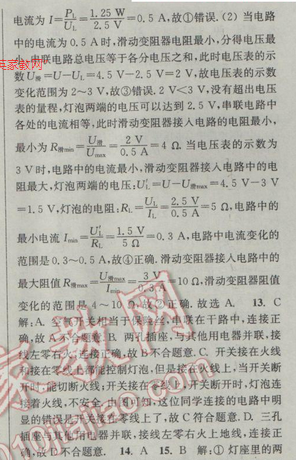 电流为 I=P_L/U_L=1.25 W/2.5 V=0.5 A,故①错误. (2) 当电路
中的电流为 0.5 A 时,滑动变阻器电阻最小,分得电压最
小,串联电路总电压等于各分电压之和,此时电压表的示
数 U滑=U-U_L=4.5 V-2.5 V=2 V,故电压表的示数
变化范围为 2~3 V,故③错误. 2 V<3 V,没有超出电压
表的量程,灯泡两端的电压可以达到 2.5 V,串联电路中
各处的电流相等,此时滑动变阻器接入电路的电阻最小,
最小为 R滑min=U滑/I max=2 V/0.5 A=4 Ω. 当电压表的示数为
3 V 时,电路中的电流最小,滑动变阻器接入电路中的电
阻最大,灯泡两端的电压:U′_L=U-U滑max=4.5 V-3 V
=1.5 V,灯泡的电阻:R_L=U_L/I_L=2.5 V/0.5 A=5 Ω,电路中的
最小电流 I min=U′_L/R_L=1.5 V/5 Ω=0.3 A,电路中电流变化的
范围是 0.3~0.5 A,故④正确. 滑动变阻器接入电路中的
最大阻值 R滑max=U滑max/I min=3 V/0.3 A=10 Ω,滑动变阻器阻值
变化的范围是 4~10 Ω,故②正确. 故选 A. 13. C
解:A. 空气开关相当于保险丝,串联在干路中,连接正
确,故 A 不合题意. B. 两孔插座,与其他用电器并联,接
线左零右火,连接正确,故 B 不合题意. C. 开关接在火线
和接在零线上都能控制灯泡,但是接在火线上,当开关断
开时,能切断火线;开关接在零线上,开关断开时,灯泡连
接着火线,不安全,不合理,如图,这位同学连接的电路中明
显的错误是开关接在零线上了,故 C 符合题意. D. 三孔
插座与其他用电器并联,接线左零右火上地线,连接正
确,故 D 不合题意. 14. A 15. B 解:①灯座里的两
英家教网